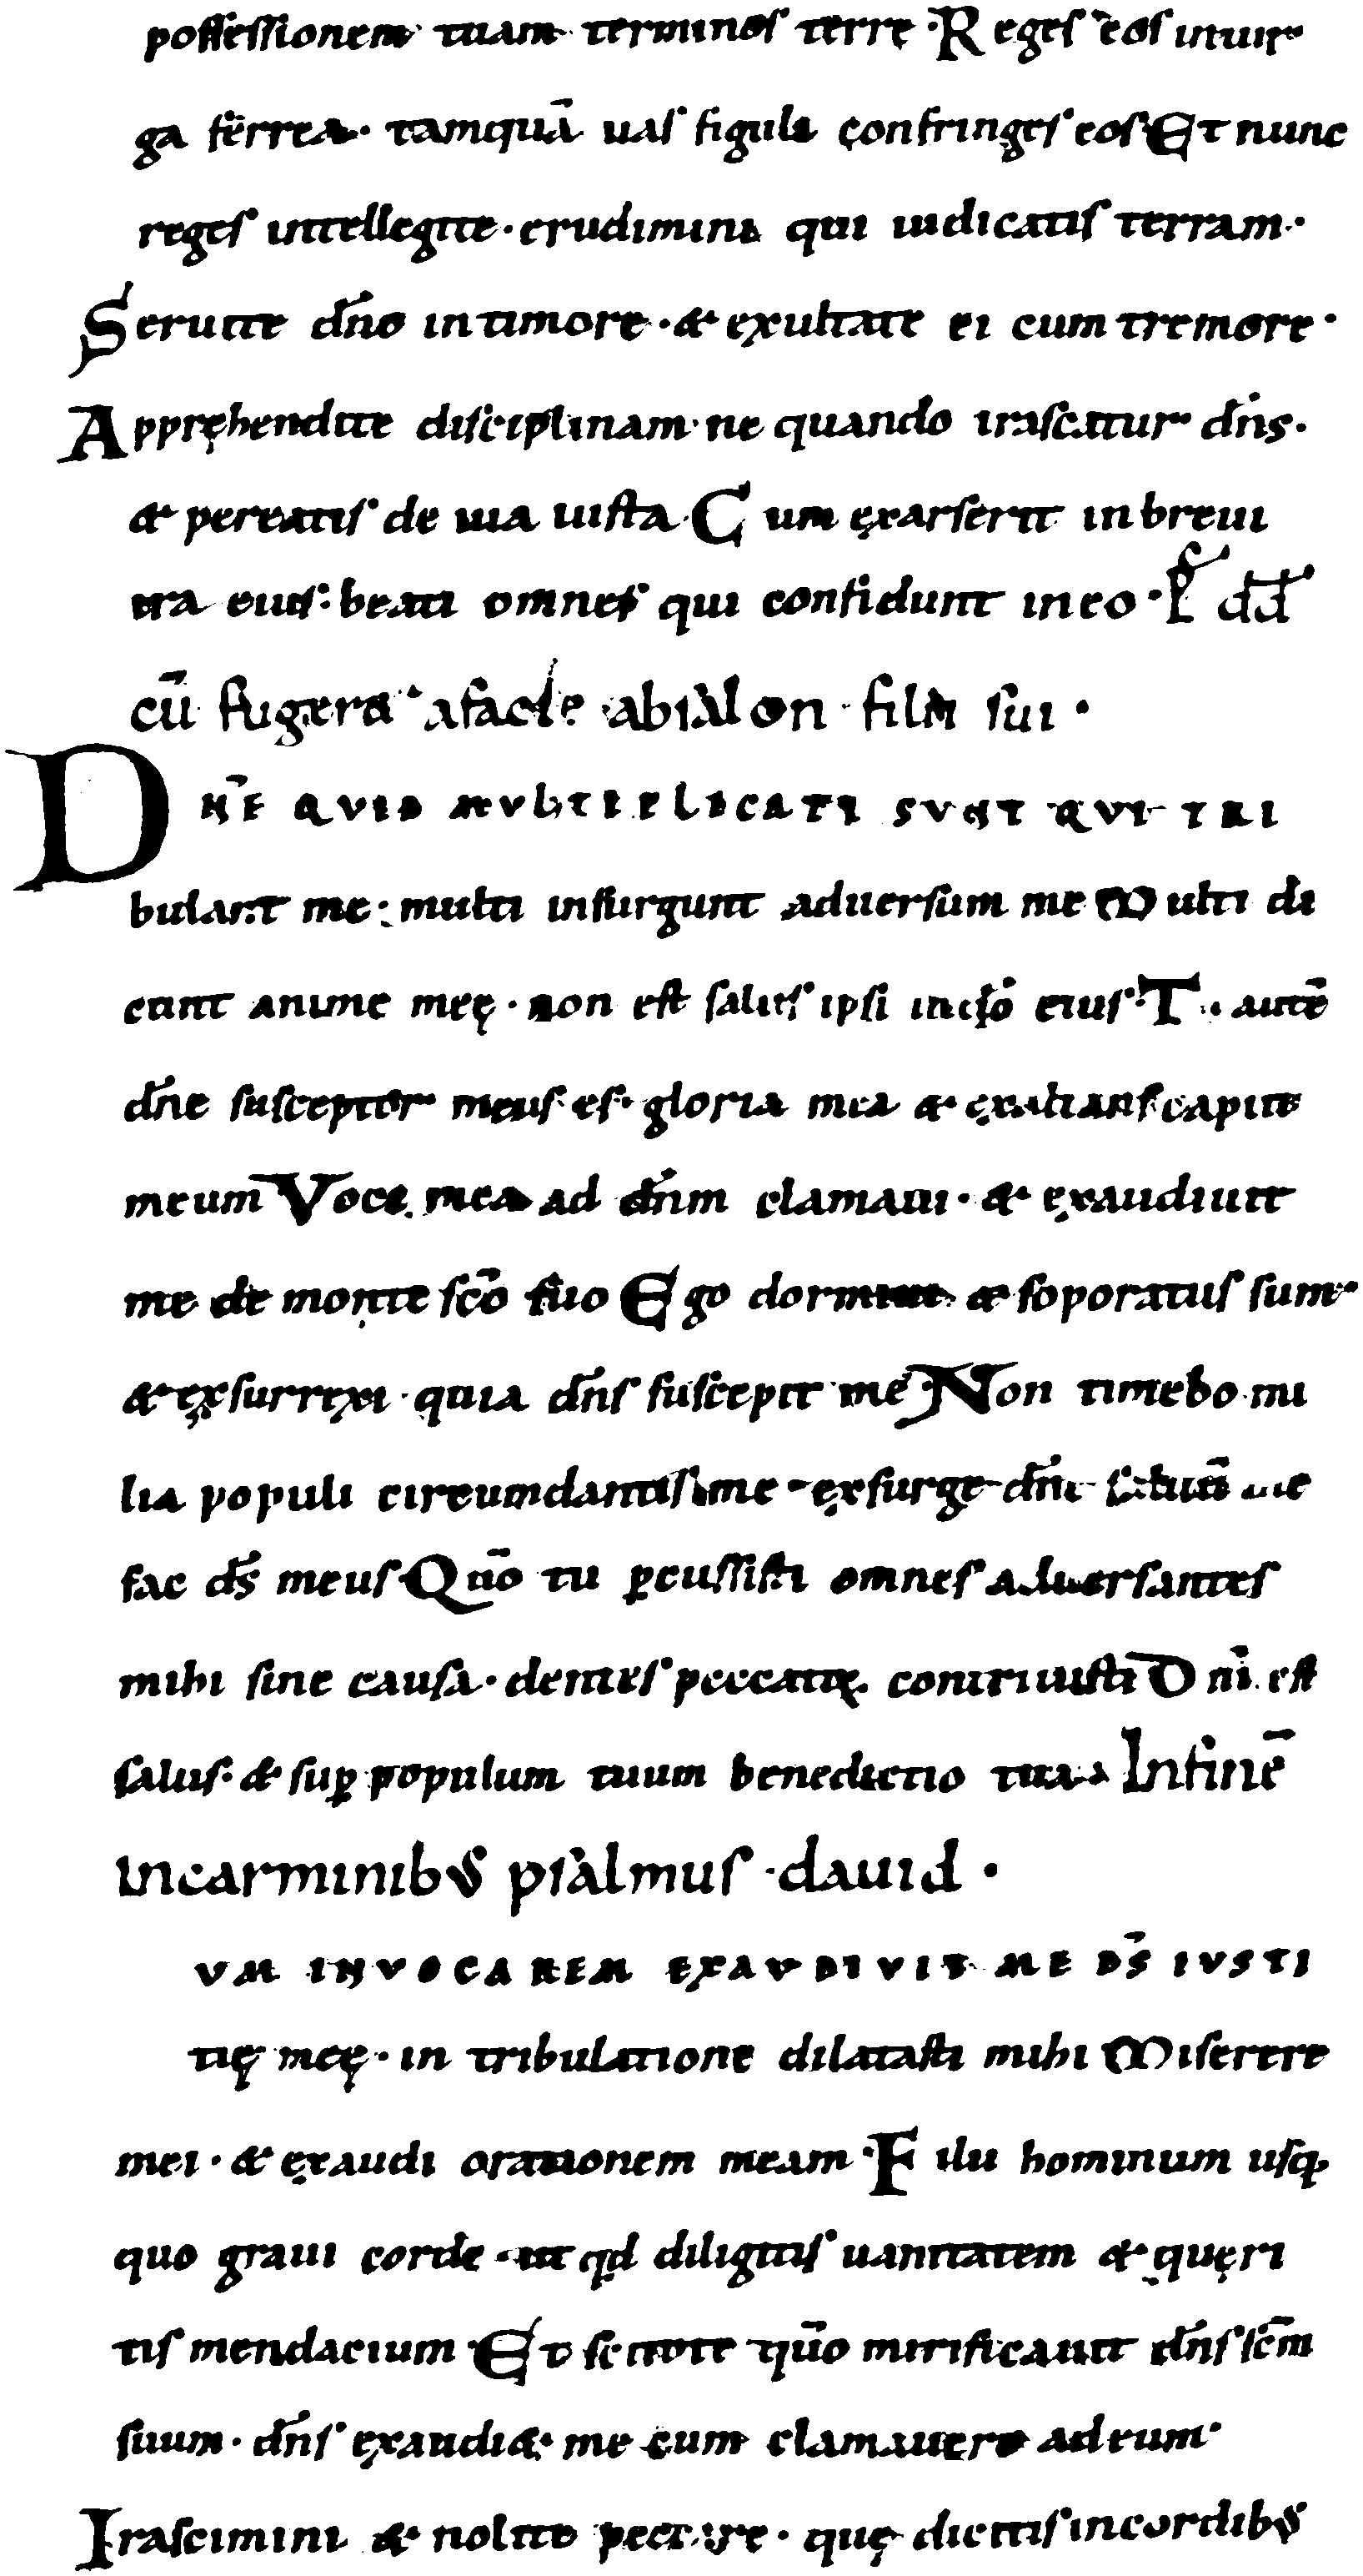 possessionem tuam terminos terrę · Reges eos in uir
ga ferrea · tamquā uas figuli confringes eos Et nunc
reges intellegite · erudimini qui iudicatis terram ·
Seruite dn̄o in timore · & exultate ei cum tremore ·
Apprȩhendite disciplinam · ne quando irascatur dn̄s ·
& pereatis de uia iusta · Cum exarserit in breui
ira eius : beati omnes qui confidunt in eo · Ps̄ dd̄
cū fugeret a facie abisalon filii sui ·
DN̄E QUID MULTIPLICATI SUNT QUI TRI
bulant me : multi insurgunt aduersum me Multi di
cunt anime meę · non est salus ipsi in dō eius · Tu autē
dn̄e susceptor meus es · gloria mea & exaltans caput
meum Voce mea ad dn̄m clamaui · & exaudiuit
me de monte scō suo Ego dormiui & soporatus sum
& exsurrexi · quia dn̄s suscepit me Non timebo mi
lia populi circumdantis me · exsurge dn̄e saluū me
fac ds̄ meus Qūo tu ꝑcussisti omnes aduersantes
mihi sine causa · dentes peccatoꝝ contriuisti Dn̄i est
salus · & suꝑ populum tuum benedictio tua · In finē
in carminibus psalmus · dauid ·
UM INVOCAREM EXAUDIVIT ME DS̄ IUSTI
tię meę · in tribulatione dilatasti mihi Miserere
mei · & exaudi orationem meam · Filii hominum usq;
quo graui corde · ut qd diligitis uanitatem & quęri
tis mendacium Et scitote qūo mirificauit dn̄s scm̄
suum · dn̄s exaudi& me cum clamauero ad eum ·
Irascimini & nolite peccare · quę dicitis in cordibus